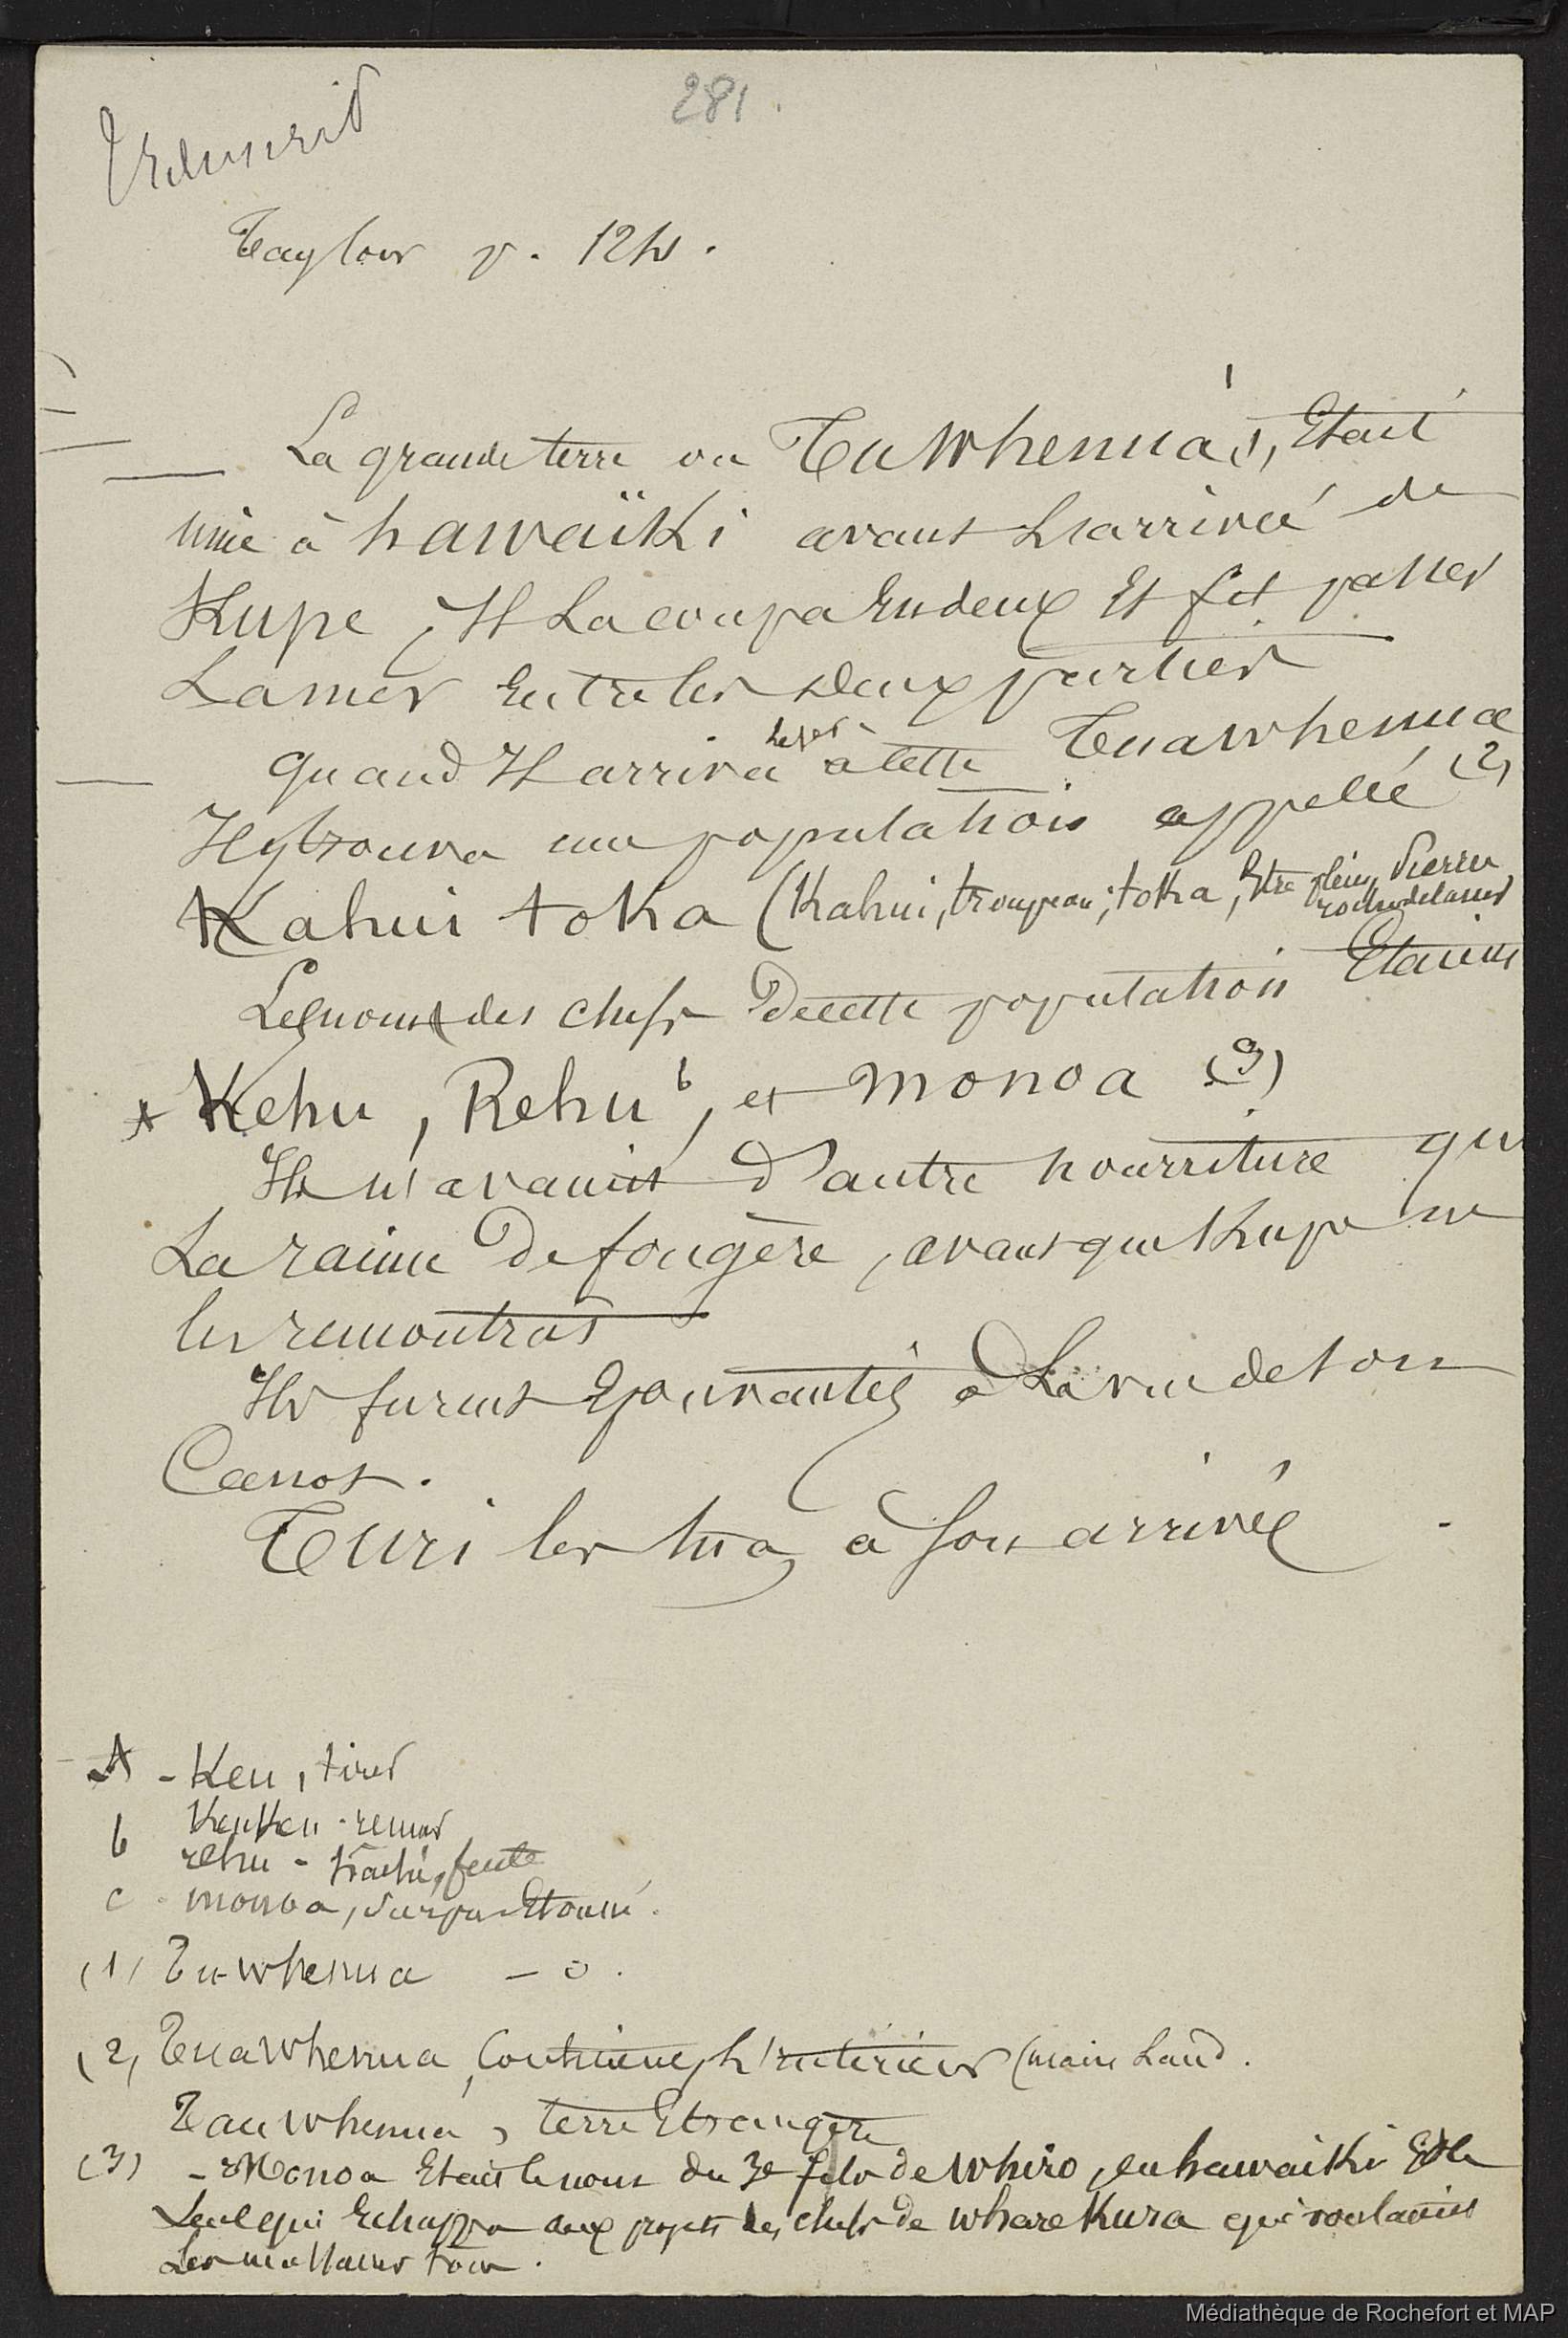 281.
Taylor p. 124.
La grande terre ou Tuwhenua (1), Etait
unie à hawaïki avant L'arrivée de
Kupe, Il La coupa En deux Et fit passer
La mer Entre les deux parties
quand Il arriva à cette Tuawhenua
Il y trouva une population appelée (2)
Kahui toka (Kahui, troupeau; toka, Etre plein, Pierre
rocher de la mer
Les noms des chefs De cette population Etaient
A Kehu, Rehu b, et monoa (3)
Ils n'avaient D'autre nourriture que
La racine De fougère, avant que Kupe ne
les rencontrat
Ils furent Epouvantés à La vue de son
Canot.
Turi les tua, à son arrivée
A - Keu, tirer
Keukeu - remuer
b rehu - fente
c - monoa, Etonné.
(1) Tu-whenua - o.
(2) Tuawhenua, Continent, L'intérieur (main Land.
Tau whenua, terre Etrangère
(3) - Monoa Etait le nom du 3e fils de Whiro, en hawaiki Et le
Seul qui Echappa aux projets des chefs de wharekura qui voulaient
Les massacrer tous.
Médiathèque de Rochefort et MAP